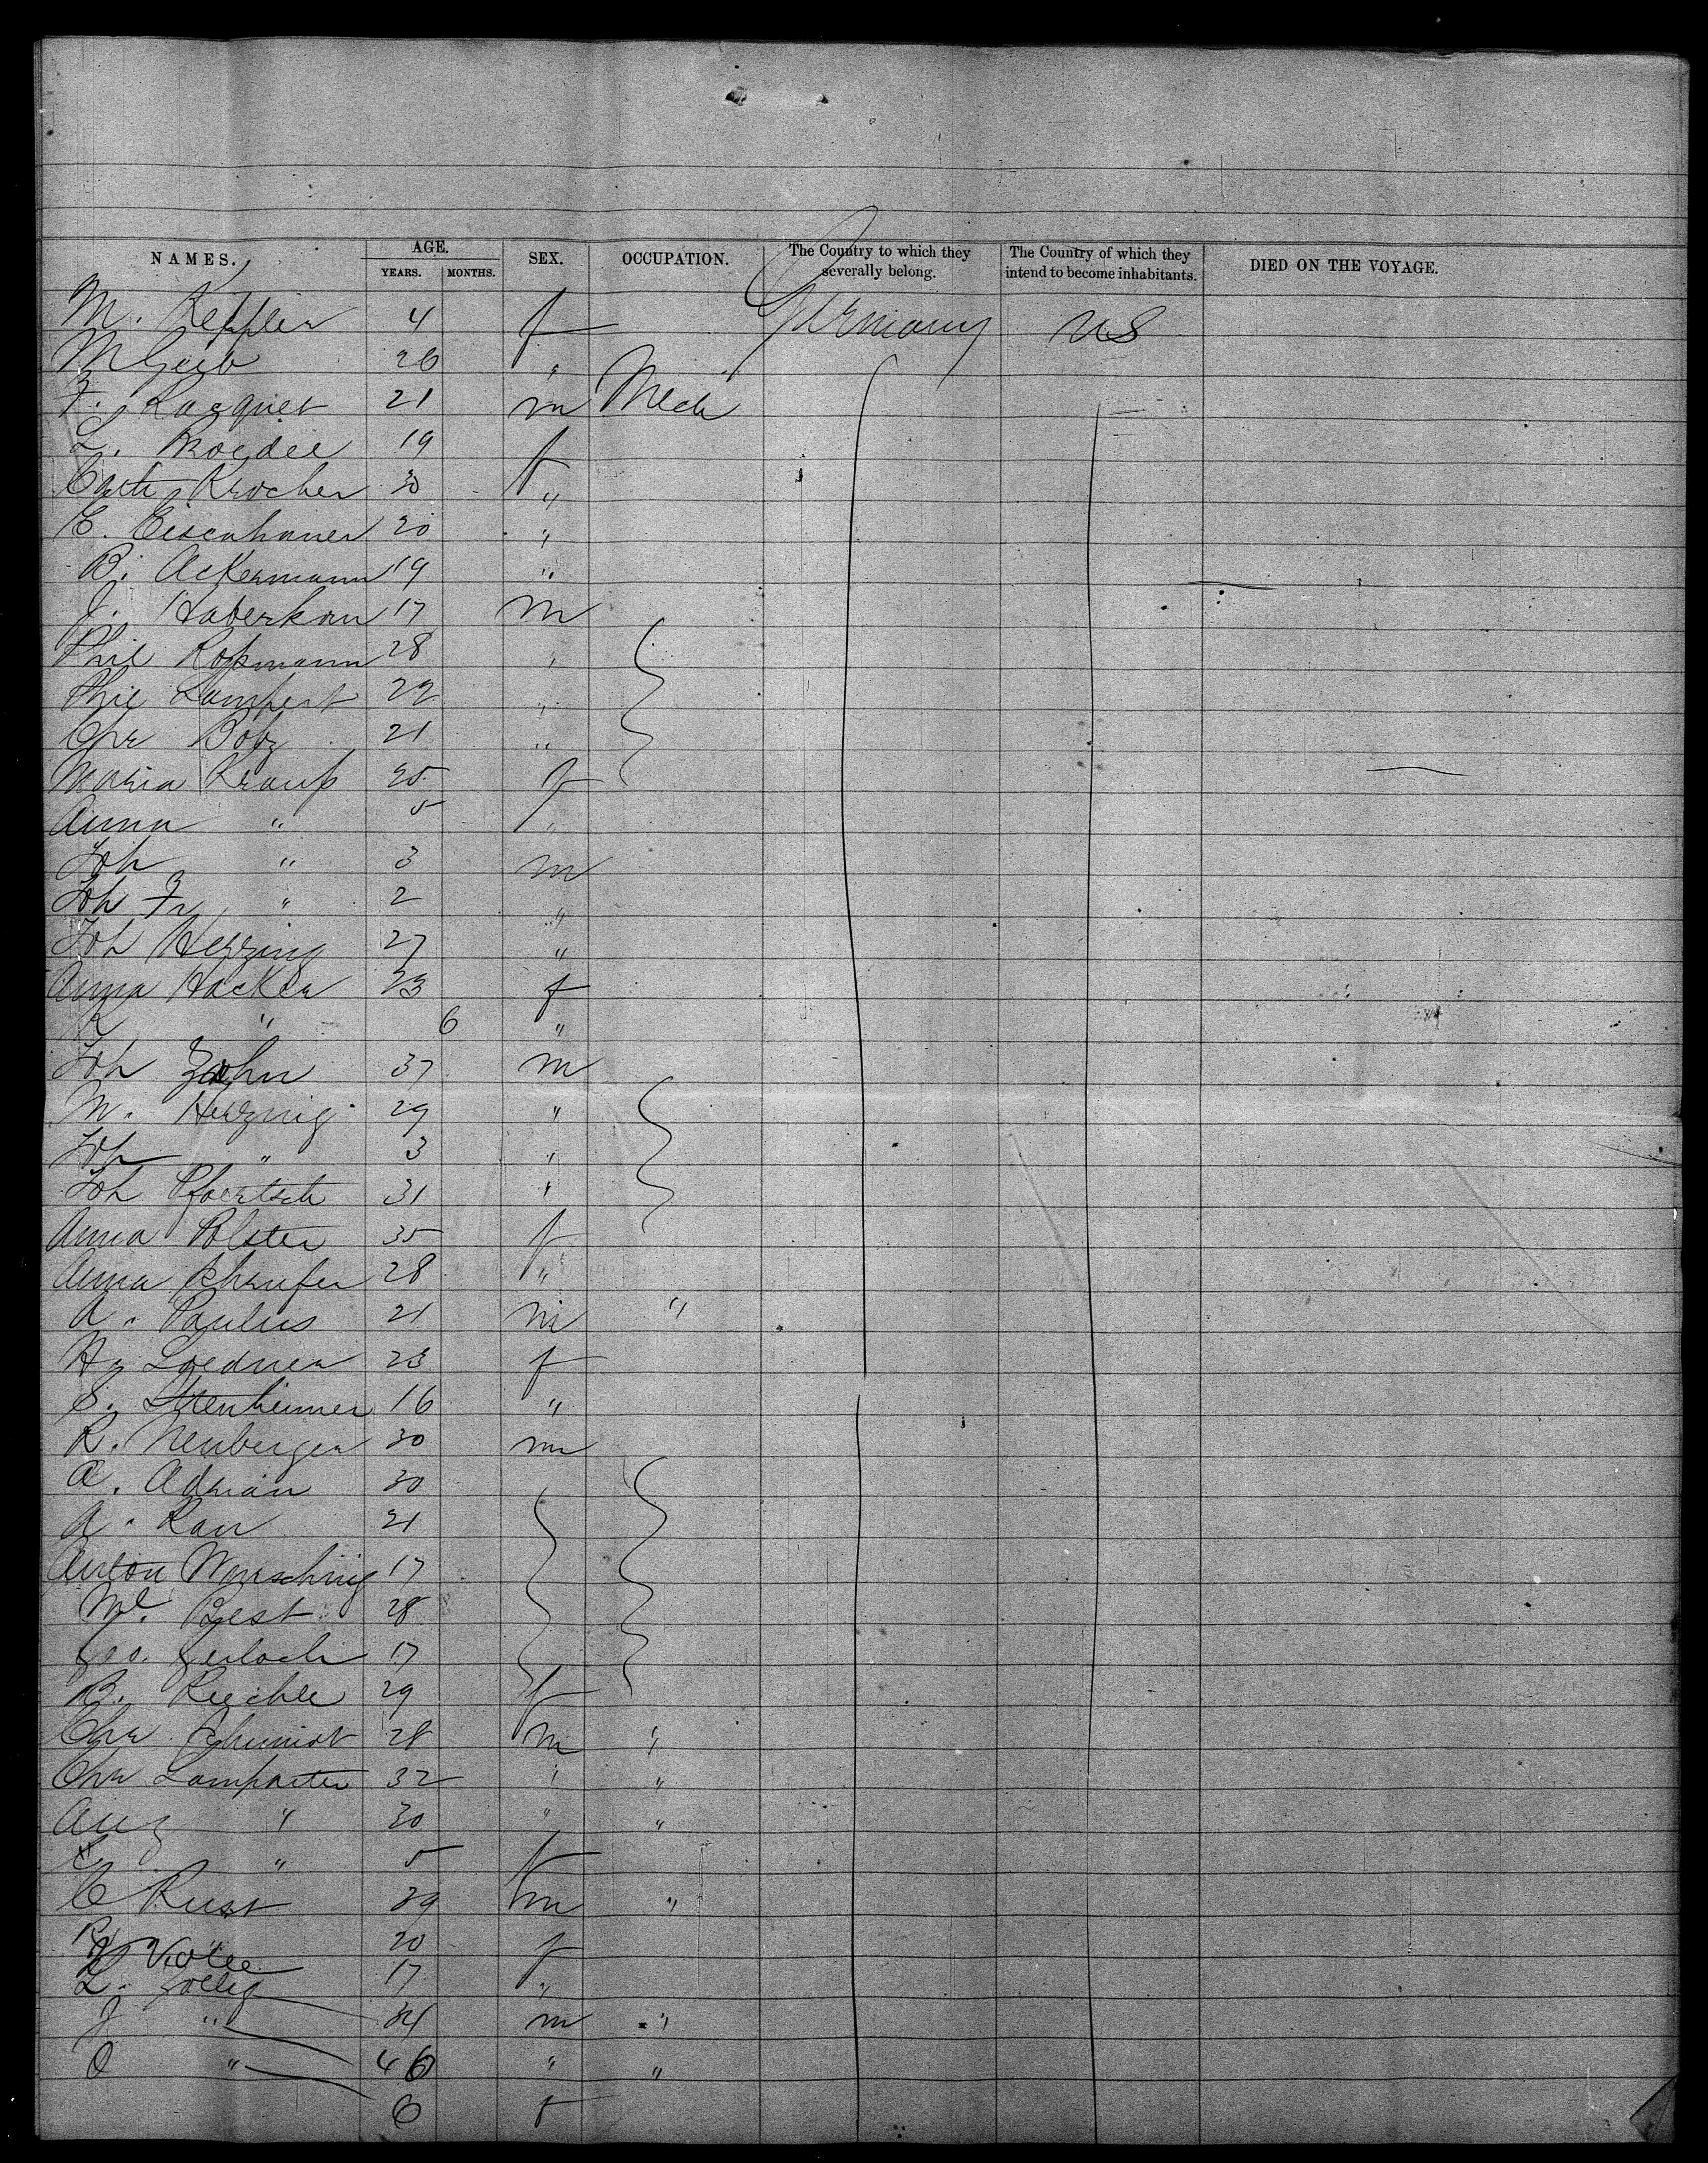 NAMES. AGE. SEX. OCCUPATION. The Country to which they severally belong. The Country of which they intend to become inhabitants. DIED ON THE VOYAGE.
YEARS. MONTHS.
M. Keppler 4 f Germany US
M Geib 26 "
F. Racquet 21 m Mech
L. 19 f
Cath Krocher 30 "
E. Eisenhauer 20 "
B. Ackermann 19 "
J. Haberkorn 17 m
Phil Roßmann 28 "
Phil Lampert 22 "
Chr Bolz 21 "
Maria Krauß 25 f
Anna " 5 "
Joh " 3 m
Joh Fr " 2 "
Joh Herzing 27 "
Anna Hacker 23 f
K " 6 "
Joh Zahn 37 m
M. Herznig 29 "
Joh " 3 "
Joh Pfoertsch 31 "
Anna Polster 35 f
Anna 28 "
A. Paulus 21 m "
Loedner 23 f
S. 16 "
R. Neuberger 30 m
A. Adrian 30
A. Rau 21
Anton Wunschnig 17
Ml. Best 28
Geo. Gerlach 17
B. Reichle 29 f
Chr Schmidt 28 m "
Chr Lamparter 32 " "
Aug " 30 " "
" 5 f
C Rust 39 m "
20 f
L. 17 "
J " 34 m "
O " 46 " "
6 f